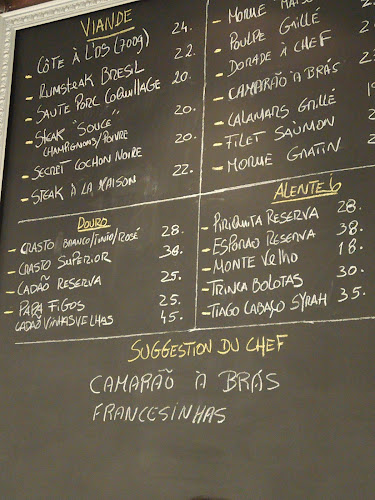 VIANDE
- CÔTE À L'OS (700g) 24.
- RUMSTEAK BRESIL 22.
- SAUTÉ PORC COQUILLAGE 20.
- STEAK "SOUCE" 20.
CHAMPIGNONS/POIVRE
- SECRET COCHON NOIRE 20.
- STEAK À LA MAISON 22.
- MORUE MAISON
- POULPE GRILLÉ
- DORADE À CHEF
- CAMARÃO À BRÁS
- CALAMARS GRILLÉ
- FILET SAUMON
- MORUE GRATIN
DOURO
- CRASTO BRANCO/TINTO/ROSÉ 28.
- CRASTO SUPERIOR 38.
- CADÃO RESERVA 25.
- PAPA FIGOS 25.
CADÃO VINHAS VELHAS 45.
ALENTEJO
- PIRIQUITA RESERVA 28.
- ESPORÃO RESERVA 38.
- MONTE VELHO 18.
- TRINCA BOLOTAS 30.
- TIAGO CABAÇO SYRAH 35.
SUGGESTION DU CHEF
CAMARÃO À BRÁS
FRANCESINHAS